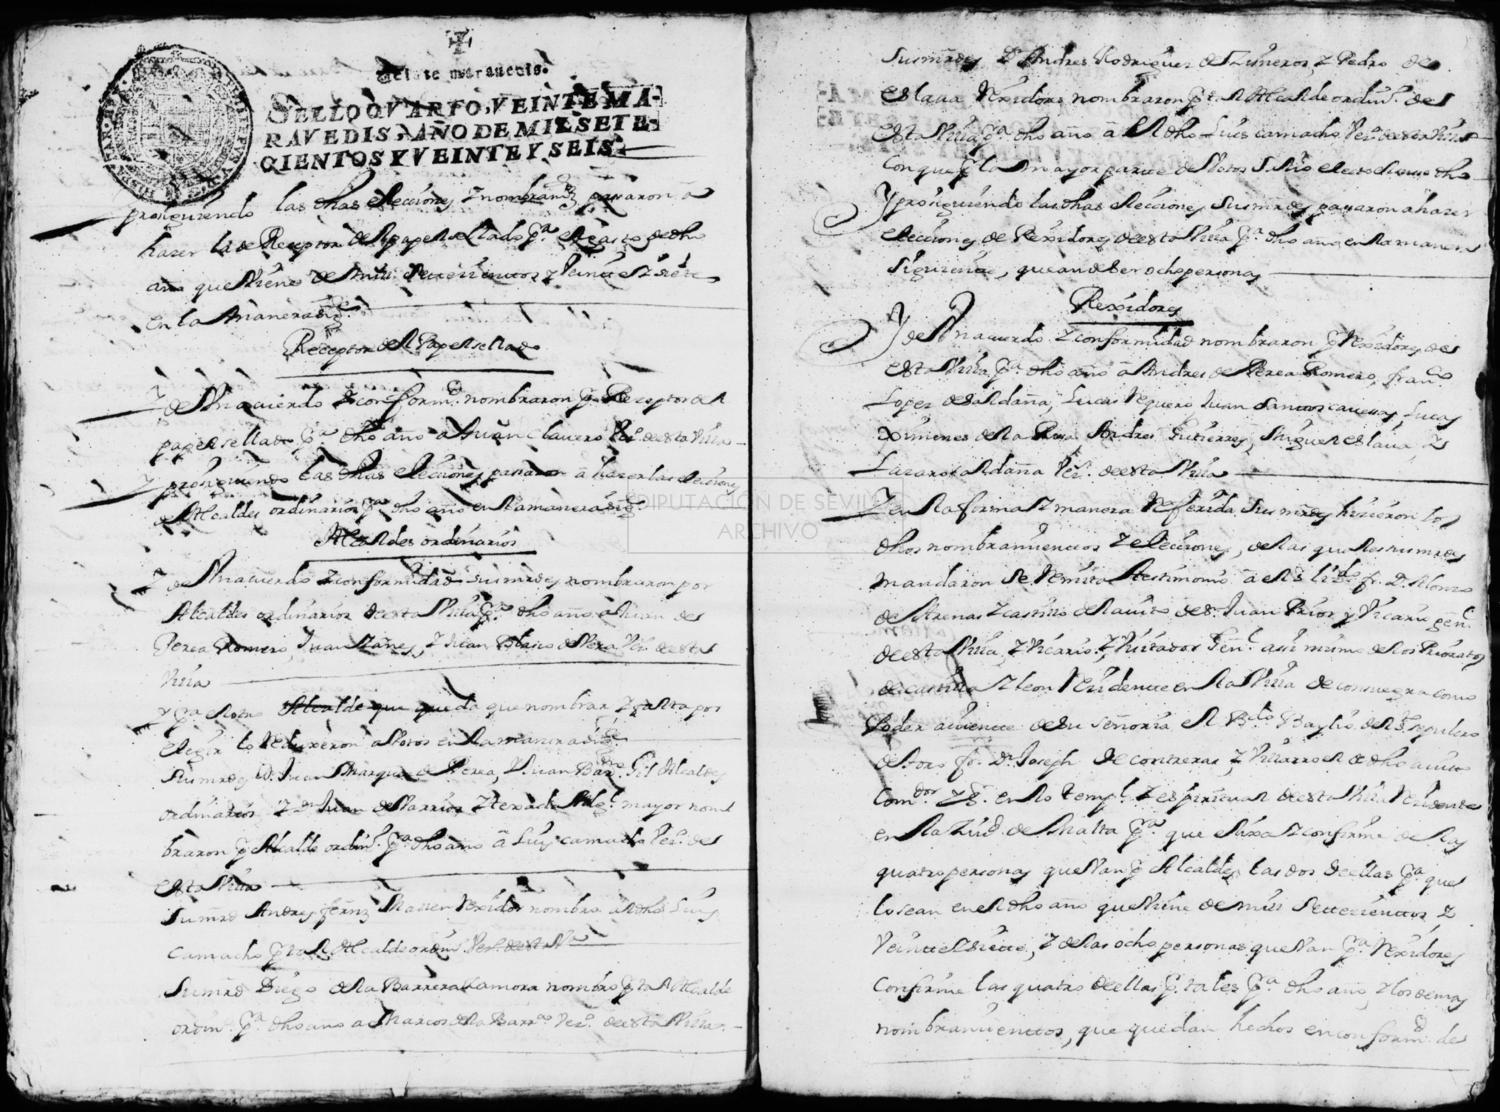 Veinte marauedis.
SELLO QVARTO, VEINTE MA-
RAVEDIS, AÑO DE MIL SETE-
CIENTOS Y VEINTE Y SEIS.
prosiguiendo las dhas elecciones y nombram.tos pasaron a
hazer la de Receptor del papel sellado p.a el gasto de dho
año que viene de mill settecienttos y veinte y siete
en la manera sig.te
Receptor del Papel sellado
Y de Un acuerdo y conformd. nombraron p.r Receptor del
papel sellado p.a dho año a Juan Clavero Vz.o de esta Villa
Y prosiguiendo las dhas elecciones pasaron â hazer las elecciones
de Alcaldes ordinarios p.a dho año en la manera sig.te
Alcaldes ordinarios
Y de Un acuerdo y conformidad sus mrdes nombraron por
Alcaldes ordinarios de esta Villa p.a dho año a Juan de
Perea Romero, Juan Yañes, y Juan Blasco de Vera Vz.os de esta
Villa
y p.a el otro Alcalde que queda que nombrar y falta por
elegir lo reduxeron a Votos en la manera sig.te
Sus mrdes D. Juan Marques de Perea, Juan Bar.me Gil Alcaldes
ordinarios y D.n Juan de Barrios y texada Alg.l mayor nom
braron p.r Alcalde ordin.o p.a dho año â Luis camacho Vz.o de
esta Villa
Su mrd Andres Mattheo Rexidor nombro al dho Luis
Camacho p.r tal Alcalde ordin.o Vz.o de esta V.a
Su mrd Diego de la Barrera Zamora nombro p.r tal Alcalde
ordin.o p.a dho año a Marcos de la Barr.a Vz.o de esta Villa
Sus mrdes D.n Andres Rodriguez de Zisneros, y Pedro de
eslava Rexidores nombraron p.r tal Alcalde ordin.o de
esta Villa p.a dho año â el dho Luis camacho Vz.o de esta Villa
Con que p.r la mayor parte de Votos salio electo el suso dho
Y prosiguiendo las dhas elecciones sus mrdes pasaron a hazer
elecciones de Rexidores de esta Villa p.a dho año en la manera
siguiente, que an de ser ocho personas
Rexidores
Y de Un acuerdo y conformidad nombraron p.r Rexidores de
esta Villa p.a dho año â Andres de Perea Romero, fran.co
Lopez de Saldaña, Lucas Veguero, Juan Santtos cauezas, Lucas
Ximenes de la Rosa Andres Gutierres, Miguel eslaua, y
Lazaro Saldaña Vz.os de esta Villa
Y en la forma y manera Referida sus mrdes hicieron los
dhos nombramienttos y elecciones, de las que sus mrdes
mandaron se Remita testimonio â el S.r liz.do fr. D. Alonso
de Arenas y castillo del auito de S.n Juan Prior y Vicario gen.l
de esta Villa, y Vicario, y Visitador Gen.l asi mismo de los Prioratos
de castilla y leon Residente en la Villa de consuegra como
Poder auiente de su señoria el V.e Baylio del S.to sepulcro
de toro fr. D.n Joseph de contreras, y Vicario de dho auito
Com.dor y S.r en lo temp.l y espiritual de esta Villa Residente
en la Ziud. de Malta p.a que elixa y confirme de las
quatro personas que Van p.r Alcaldes las dos de ellas p.a que
lo sean en el dho año que viene de mill settecienttos y
Veintte y siete, y de las ocho personas que Van p.a Rexidores
Confirme las quatro de ellas p.r tales p.a dho año, y los demas
nombramienttos, que quedan hechos en conformd. de
DIPUTACIÓN DE SEVILLA
ARCHIVO